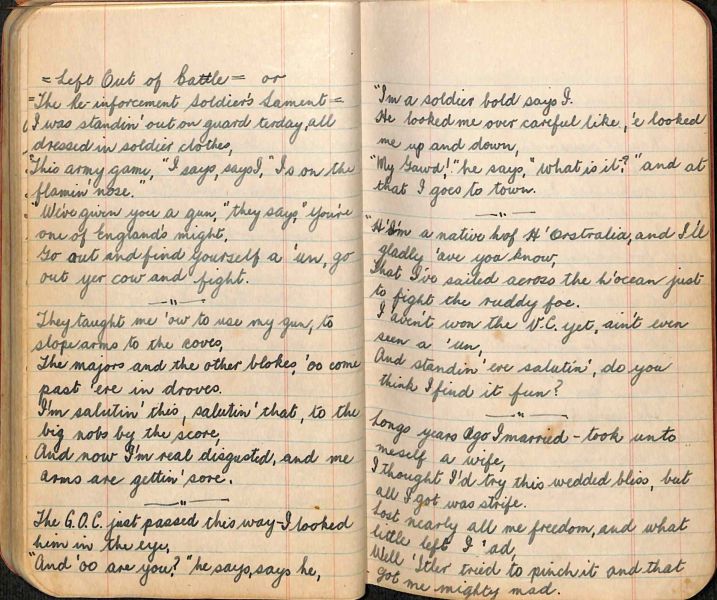 = Left Out of Battle = or
"The Re-inforcement Soldier's Lament =
I was standin' out on guard terday, all
dressed in soldier clothes,
"This army game, "I says, says I, "Is on the
flamin' nose."
We've given you a gun, "they says," You're
one of England's might,
Go out and find yourself a 'un, go
out yer cow and fight.
—"—
They taught me 'ow to use my gun, to
slope arms to the coves,
The majors and the other blokes, 'oo come
past 'ere in droves.
I'm salutin' this, salutin' that, to the
big nobs by the score,
And now I'm real disgusted, and me
arms are gettin' sore.
—"—
The G.O.C. just passed this way - I looked
him in the eye,
"And 'oo are you?" he says, says he,
"I'm a soldier bold says I.
He looked me over careful like, 'e looked
me up and down,
"My Gawd!" he says, "what is it?" and at
that I goes to town.
—"—
"H'I'm a native h'of H'Orstralia, and I'll
gladly 'ave you know,
That I've sailed across the h'ocean just
to fight the ruddy foe.
I 'aven't won the V.C. yet, ain't even
seen a 'un,
And standin' 'ere salutin', do you
think I find it fun?
—"—
Longs years ago I married - took unto
meself a wife,
I thought I'd try this wedded bliss, but
all I got was strife.
Lost nearly all me freedom, and what
little left I 'ad,
Well 'Itler tried to pinch it and that
got me mighty mad.